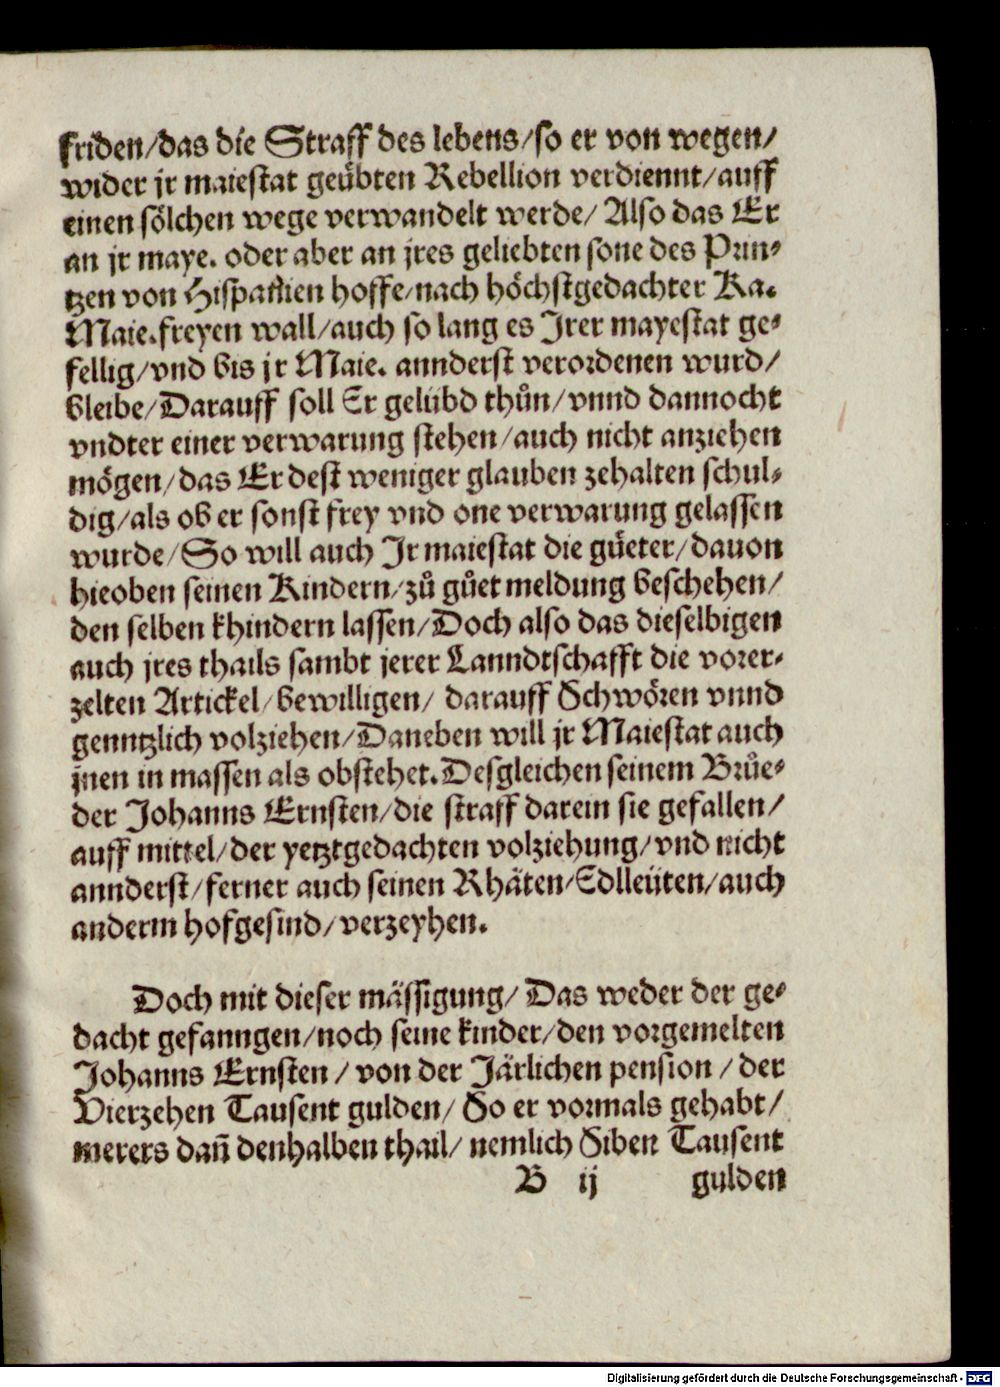 friden/das die Straff des lebens/so er von wegen/
wider jr maiestat geübten Rebellion verdiennt/auff
einen sölchen wege verwandelt werde/ Also das Er
an jr maye. oder aber an jres geliebten sone des Prin⸗
tzen von Hispanien hoffe/nach höchstgedachter Ka.
Maie.freyen wall/auch so lang es Jrer mayestat ge⸗
fellig/vnd bis jr Maie. annderst verordenen wurd/
bleibe/Darauff soll Er gelübd thůn/vnnd dannocht
vndter einer verwarung stehen/auch nicht anziehen
mögen/das Er dest weniger glauben zehalten schul⸗
dig/als ob er sonst frey vnd one verwarung gelassen
wurde/So will auch Jr maiestat die güeter/dauon
hieoben seinen Kindern/zů gůet meldung beschehen/
den selben khindern lassen/Doch also das dieselbigen
auch jres thails sambt jerer Lanndtschafft die vorer⸗
zelten Artickel/bewilligen/ darauff Schwören vnnd
genntzlich volziehen/Daneben will jr Maiestat auch
jnen in massen als obstehet.Desgleichen seinem Brůe⸗
der Johanns Ernsten/die straff darein sie gefallen/
auff mittel/der yetztgedachten volziehung/vnd nicht
annderst/ferner auch seinen Rhäten/Edlleüten/auch
anderm hofgesind/verzeyhen.
Doch mit dieser mässigung/ Das weder der ge⸗
dacht gefanngen/noch seine kinder/den vorgemelten
Johanns Ernsten / von der Järlichen pension / der
Vierzehen Tausent gulden/ So er vormals gehabt/
merers dañ denhalben thail/ nemlich Siben Tausent
B ij gulden
Digitalisierung gefördert durch die Deutsche Forschungsgemeinschaft - DFG